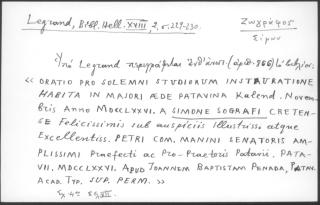 Legrand, Bibl. Hell. XVIII, 2, σ. 229-230.
Ζωγράφος
Σίμων
Ὑπὸ Legrand περιγράφεται ἐνθ' ἀνωτ. (ἀριθ. 966) τὸ βιβλίον:
« ORATIO PRO SOLEMNI STUDIORUM INSTAURATIONE
HABITA IN MAJORI ÆDE PATAVINA Kalend. Novem-
bris Anno MDCCLXXVI. A SIMONE SOGRAFI CRETEN-
SE Felicissimis sub auspiciis Illustriss. atque
Excellentiss. PETRI COM. MANINI SENATORIS AM-
PLISSIMI Praefecti ac Pro-Praetoris Patavii. PATA-
VII. MDCCLXXVI. APUD JOANNEM BAPTISTAM PENADA, PATAV.
ACAD. TYP. SUP. PERM. »